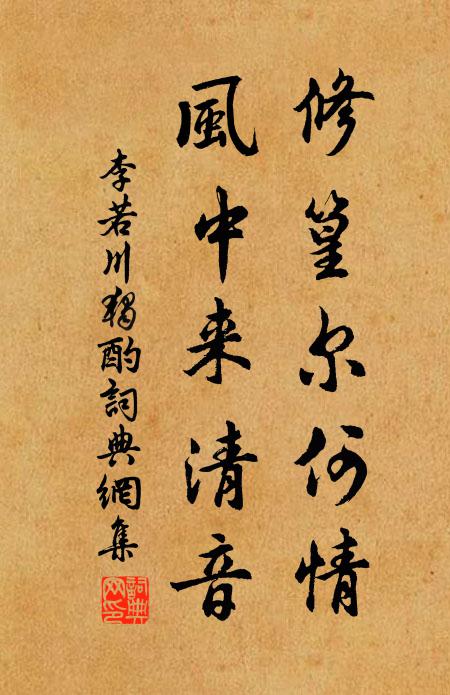 修篁尔何情
風中来清音
李若川獨酌詞典網集
詞典
网印